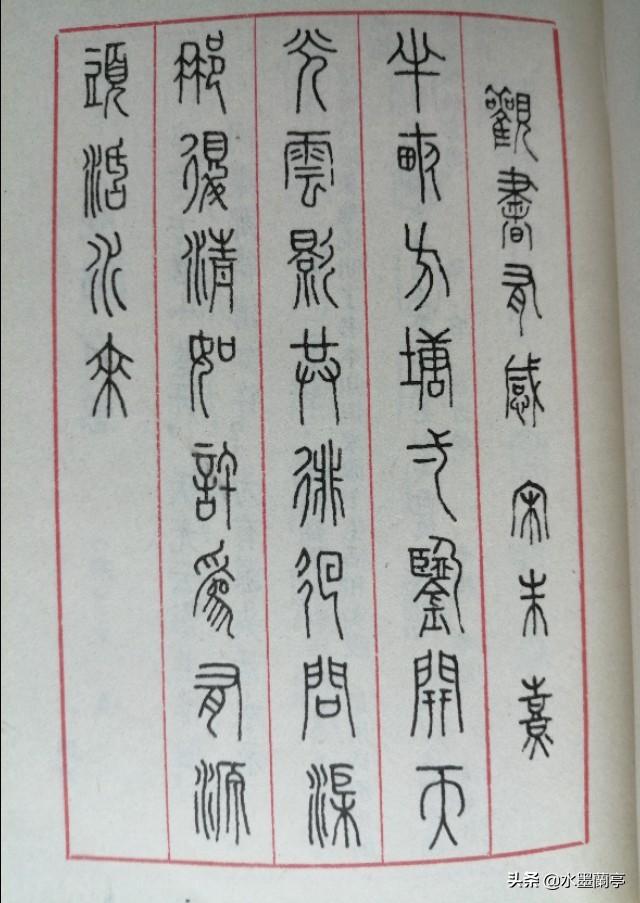 觀書有感 宋朱熹
半畝方塘弌鑒開天
光雲影共徘徊問渠
那得清如許為有源
頭活水來
头条 @水墨蘭亭